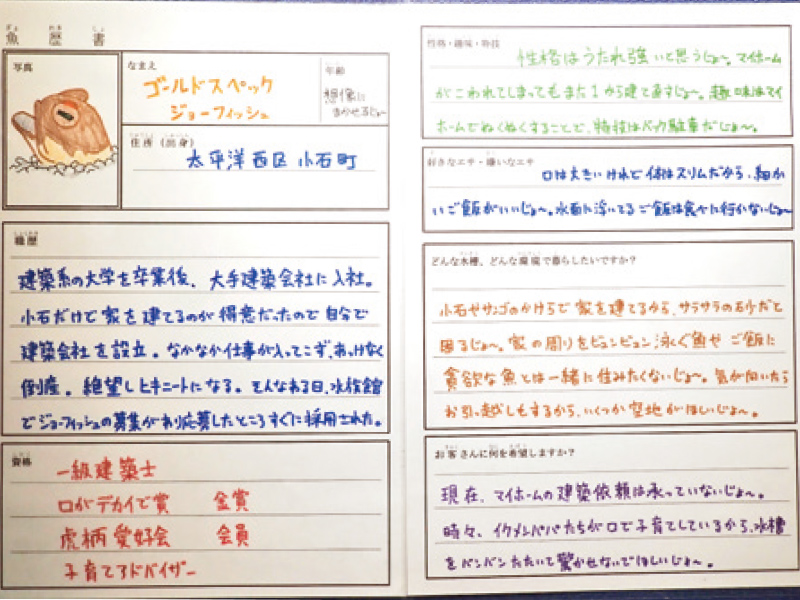 魚歴書
写真
なまえ
ゴールドスペック
ジョーフィッシュ
年齢
想像に
まかせるじょ〜
住所(出身)
太平洋西区小石町
職歴
建築系の大学を卒業後、大手建築会社に入社。
小石だけで家を建てるのが得意だったので自分で
建築会社を設立。なかなか仕事が入ってこず、あっけなく
倒産。絶望しヒキニートになる。そんなある日、水族館
でジョーフィッシュの募集があり応募したところすぐに採用された。
資格
一級建築士
口がデカイで賞 金賞
虎柄愛好会 会員
子育てアドバイザー
性格・趣味・特技
性格はうたれ強いと思うじょ〜。マイホーム
がこわれてしまってもまた1から建て直すじょ〜。趣味はマイ
ホームでぬくぬくすることで、特技はバック駐車だじょ〜。
好きなエサ・嫌いなエサ
口は大きいけれど体はスリムだから、細か
いご飯がいいじょ〜。水面に浮いてるご飯は食べに行かないじょ〜
どんな水槽、どんな環境で暮らしたいですか?
小石やサンゴのかけらで家を建てるから、サラサラの石少だと
困るじょ〜。家の周りをビュンビュン泳ぐ魚やご飯に
貪欲な魚とは一緒に住みたくないじょ〜。気が向いたら
お引っ越しもするから、いくつか空地がほしいじょ〜。
お客さんに何を希望しますか?
現在、マイホームの建築依頼は承っていないじょ〜。
時々、イクメンパパたちが口で子育てしているから、水槽
をバンバンたたいて驚かせないでほしいじょ〜。